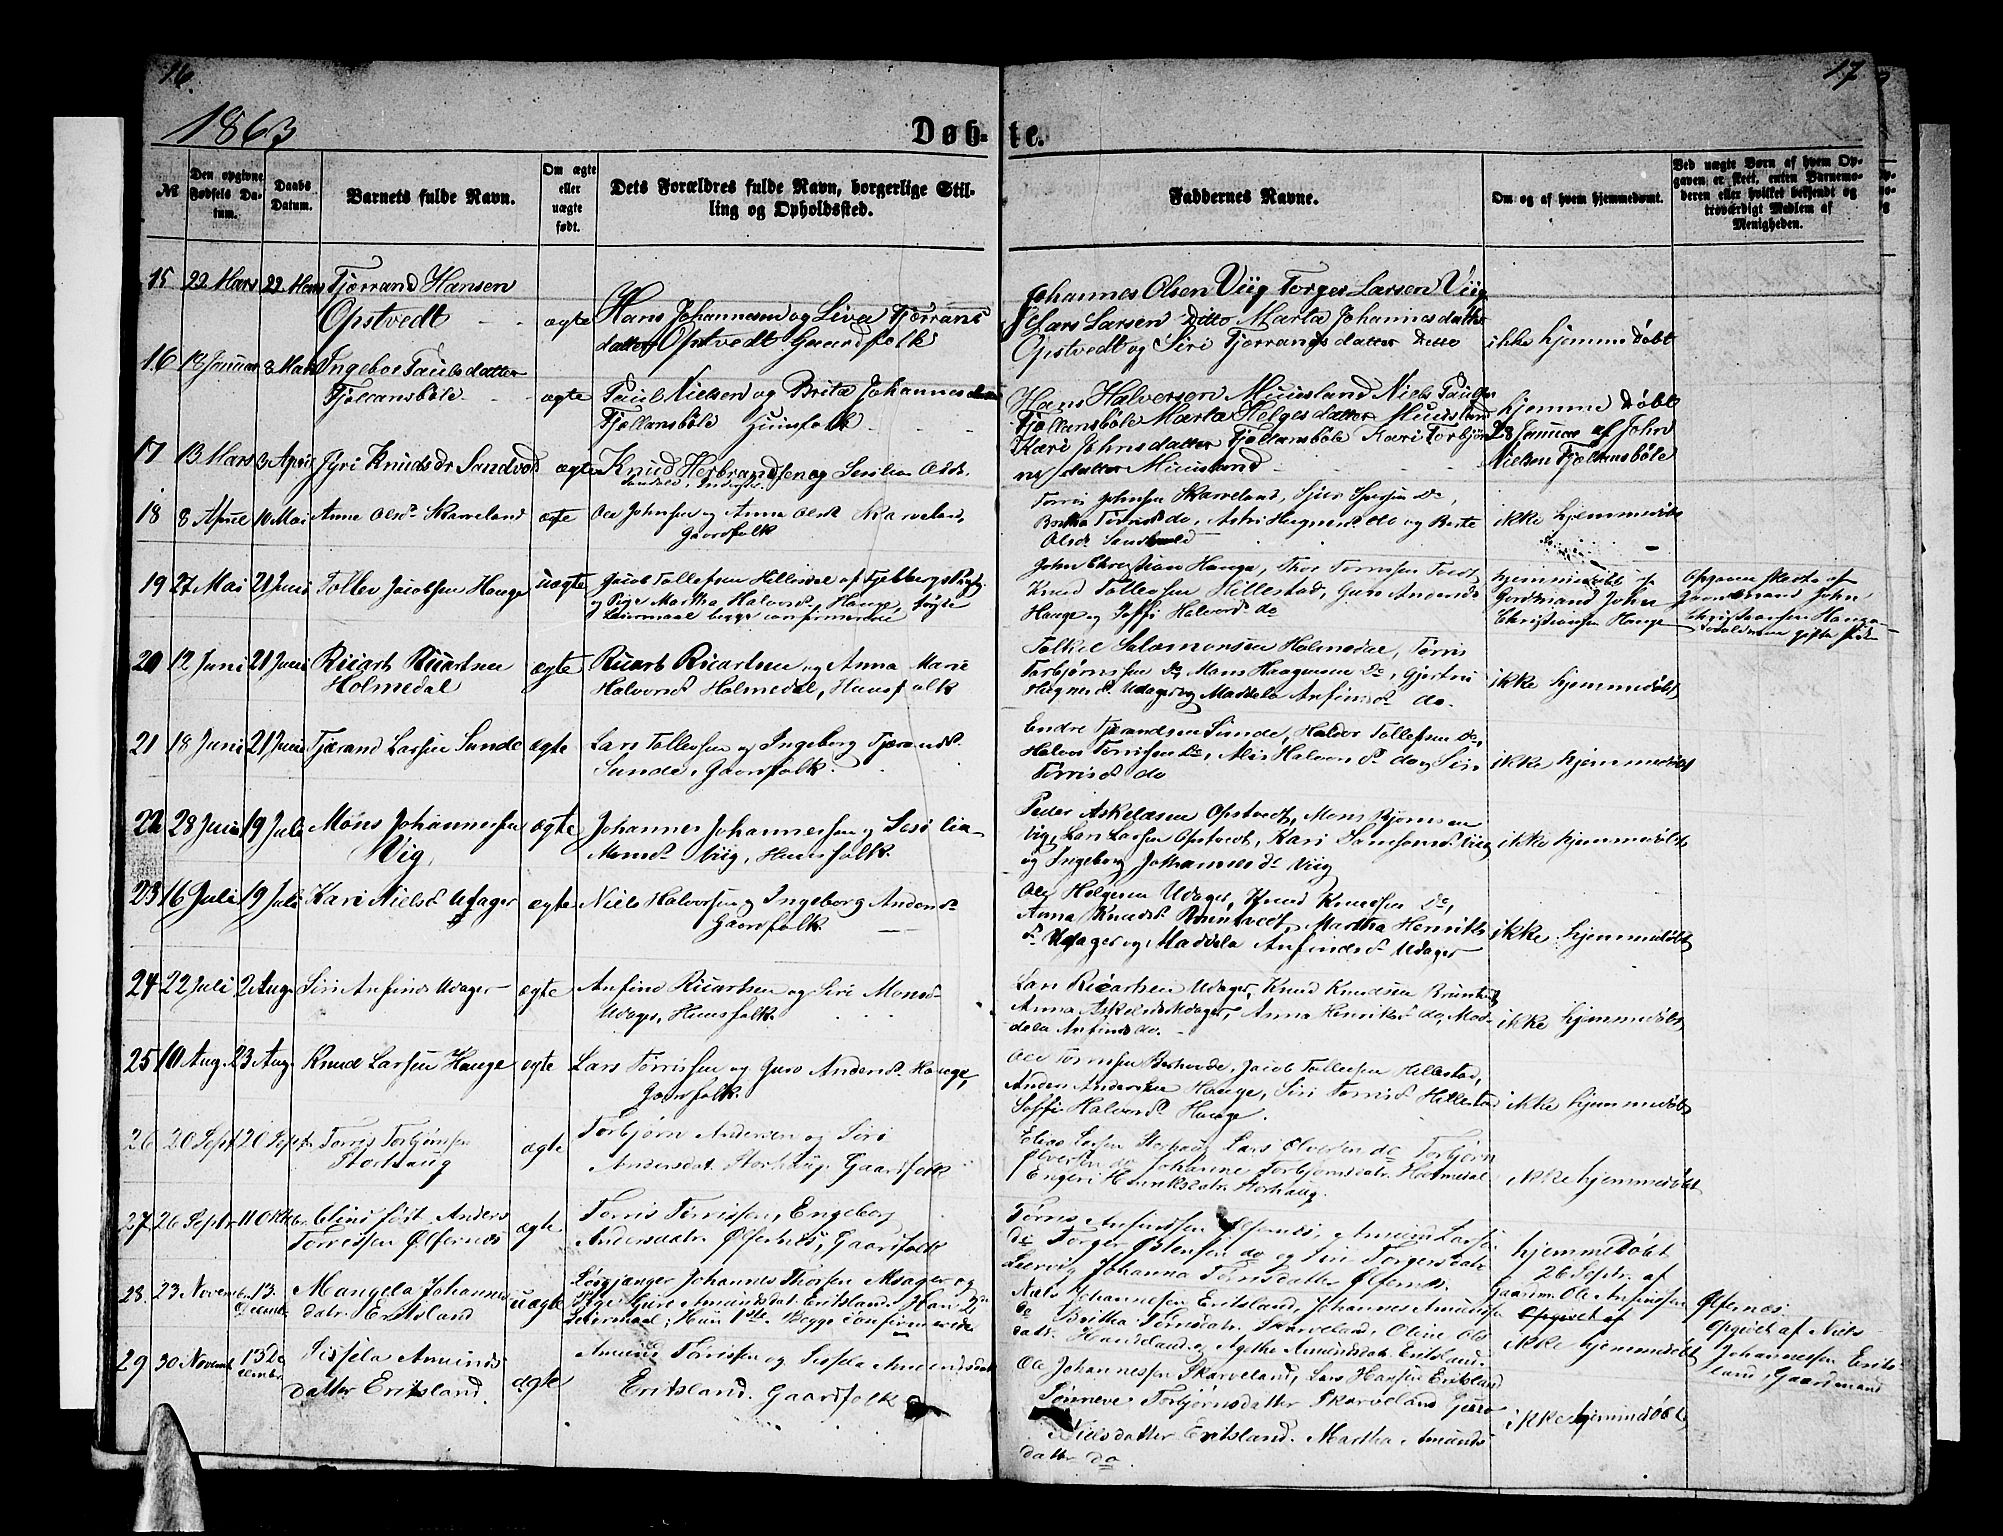 16.
17
1863
Døb-
te.
№
Den opgivne Fødsels Datum.
Daabs Datum.
Barnets fulde Navn.
Om ægte eller uægte født.
Dets Forældres fulde Navn, borgerlige Stilling og Opholdssted.
Faddernes Navne.
Om og af hvem hjemmedømt.
Ved uægte Børn af hvem Opgaven er skett, enten Barnemoderen eller hvilket bekjendt og troværdigt Medlem af Menigheden.
15 22 Mars 22 Mars Tjærrand Hansen
Opstvedt ægte
Hans Johannesen og Liva Tjærrans
datter Opstvedt Gaardfolk
Johannes Olsen Viig Torger Larsen Viig
Lars Larsen Ditto Marta Johannesdatter
Opstvedt og Siri Tjærrangsdatter Ditto
ikke hjemme Døbt
16 18 Januar 8 Mars Ingebor Paulsdatter
Fjællansbøle ægte
Paul Nielsen og Brita Johannesdatter
Fjællansbøle Huusfolk
Hans Halversen Muusland Niels Paulsen
Fjællansbøle Marta Helgesdatter Muusland
Kari Johnsdatter Fjællansbøle Kari Torbjør
nsdatter Muusland
hjemme Døbt
28 Januar af John
Nielsen Fjællansbøle
17 13 Mars 3 April Gyri Knudsdr Sandvold ægte Knud Herbrandsen og Sesilia Olsdr
18 8 April 10 Mai Anna Olsdr Skarveland ægte Ole Johnsen og Anna Olsdr Skarveland,
Gaardfolk
Torris Johnsen Skarveland, Sjur Sjursen Do,
Britha Torrisdr do, Astri Haagensdr do og Berte
Olsdr Sandvold
ikke hjemmedøbt
19 27 Mai 21 Juni Tollev Jacobsen Hauge uægte
Jacob Tollefsen Hillestad af Fjelberg Prgj
og Pige Martha Halvorsdr Hauge, 1ste
Leiermaal begge confirmerede
John Christian Hauge, Thor Tormsen Tvedt
Knud Tollevsen Hillestad, Guro Andersdr
Hauge og Soffi Halvordsdr do
hjemmedøbt af
Gordmand John
Christiansen Hauge
Opgaven skedte af
Gaardmand John
Christiansen Hauge
20 12 Juni 21 Juni Ricart Ricartsen
Holmedal ægte
Ricart Ricartsen og Anna Marie
Halvorsdr Holmedal, Huusfolk
Folkel Salamonsen Holmedal, Torris
Torbjørnssen Do Mons Haagensen Do, Gjertru
Helgesdr Udager og Maddela Anfinsdr do.
ikke hjemmedøbt
21 18 Juni 21 Juni Tjærand Larsen Sunde ægte
Lars Tollevsen og Ingeborg Tjærandsdr
Sunde, Gaardfolk.
Endre Tjærandsen Sunde, Haldor Tollefsen Do,
Halvor Torrissen Do, Alis Halvorsdr do og Siri
Torrisdr do
ikke hjemmedøbt
22 28 Juni 19 Juli Mons Johannessen
Vig, ægte
Johannes Johannessen og Sesilia
Monsdr Viig, Huusfolk.
Peder Askelasen Opstvedt, Mons Bjørnsen
Vig, Lars Larsen Opstvedt, Kari Samsonsdr Viig
og Ingeborg Johannesdr Viig
ikke hjemmedøbt
23 16 Juli 19 Juli Kari Nielsdr Udager ægte
Niels Halvorsen og Ingeborg Andersdr
Gaardfolk.
Ole Helgesen Udager, Knud Knudsen Do,
Anna Knudsdr Bruntvedt, Martha Henriks
dr Udager og Maddela Anfindsdr Udager
ikke hjemmedøbt
24 22 Juli 2 Aug. Siri Anfinds Udager ægte
Anfind Ricartsen og Siri Monsdr
Udager, Huusfolk.
Lars Ricartsen Udager, Knud Knudsen Bruntvedt
Anna Askelsdr Udager, Anna Henriksdr do, Mad-
dela Anfindsdr do.
ikke hjemmedøbt
25 10 Aug. 23 Aug. Knud Larsen Hauge ægte
Lars Torrissen og Guro Andersdr Hauge,
Gaardfolk.
Ole Tormsen, Jacob Tollevsen Hillestad,
Anders Andersen Hauge, Siri Torrisdr Hillestad
Soffi Halvordsdr Hauge.
ikke hjemmedøbt
26 20 Sept 20 Septr Torris Torbjørnsen
Storhaug ægte
Torbjørn Andersen og Siri
Andersdatr Storhaug, Gaardfolk
Elias Larsen Storhaug Lars Ølversen do Torbjørn
Ølversen do Johanne Torbjørnsdatr. Holmedal
Engeri Henriksdatr. Storhaug.
ikke hjemmedøbt
27 26 Septr 11 Oktbr. Anders
Torrissen Ølfernes ægte
Torris Torrissen, Engeborg
Andersdatr. Ølfernes, Gaardfolk
Torris Anfindsen Ølfernes, Amund Larsen
do Torger Østensen do og Siri Torgersdatr
Leervig Johanna Torrisdatter Ølfernes.
hjemmeDøbt
26 Septr. af
Gaardm. Ole Anfindsen
Ølfernes
28. 23 November 13. December Mangela Johannes
datr. Eritsland uægte
Johannes Thorsen Msager og
Pige Guro Amundsdat. Eritsland. Han 2de
Leiermaal; Hun 1ste. Begge confirmerede
Niels Johannesen Eritsland, Johannes Amundsen
do Britha Torrisdatr. Skarveland, Oline Ols
datr. Handeland og Agthe Amundsdat. Eritsland.
ikke hjemmedøbt
Opgivet af Niels
Johannessen Erits
land, Gaardmand
29 30 Novembr 13 December Sissela Amunds
datter Eritsland. ægte
Amund Torrissen og Sissela Amundsdatr
Eritsland. Gaardfolk
Ole Johannessen Skarveland, Lars Hansen Eritsland
Sønneve Torbjørnsdatter Skarveland Guro
Nielsdatter Eritsland. Martha Amunds
datter do.
ikke hjemmedøbt